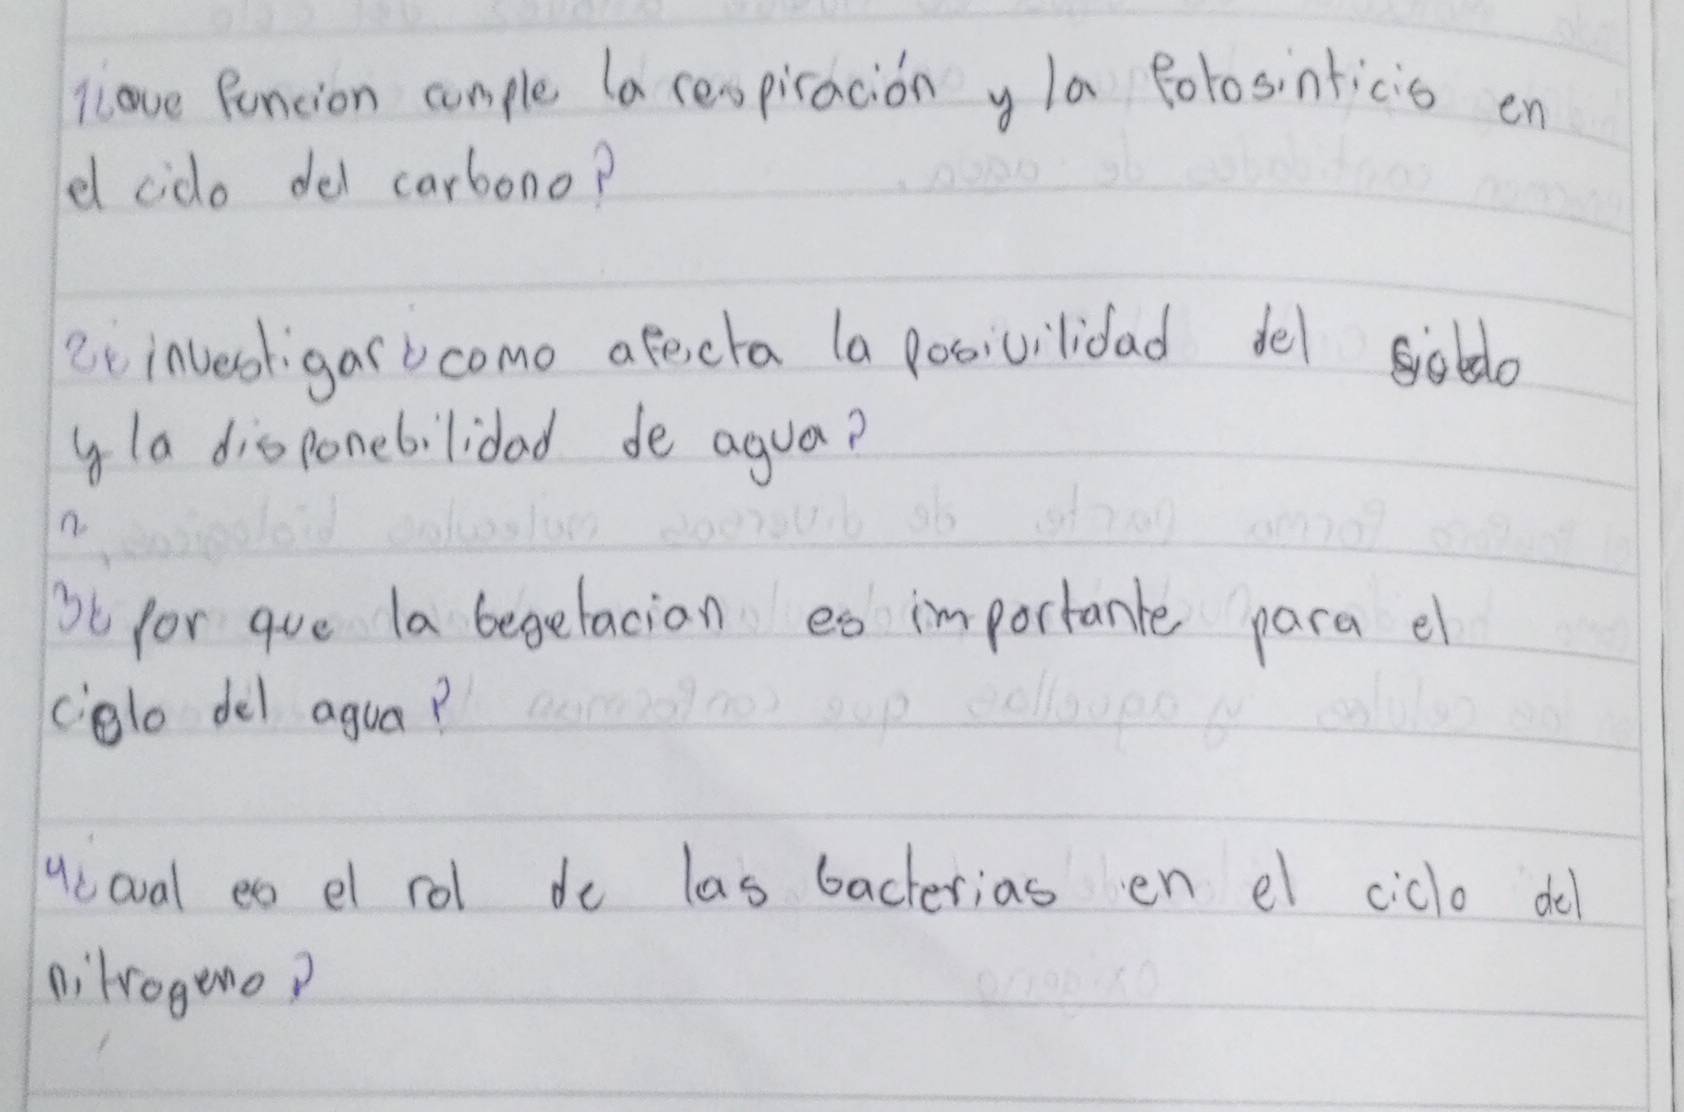 1¿que funcion cumple la respiración y la fotosinticis en
el ciclo del carbono?
2¿investigar¿como afecta la posivilidad del
y la disponebilidad de agua?
3¿por que la begetacion es importante para el
ciclo del agua?
4¿cual es el rol de las bacterias en el ciclo del
nitrogeno?